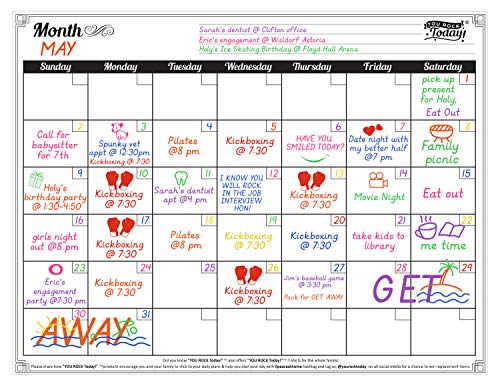 Month
MAY
Sarah's dentist @ Clifton office
Eric's engagement @ Waldorf Astoria
Holy's Ice Skating Birthday @ Floyd Hall Arena
YOU ROCK
Today!
Sunday Monday Tuesday Wednesday Thursday Friday Saturday
1
pick up
present
for Holy,
Eat Out
2
Call for
babysitter
for 7th
3
Spunky vet
appt @ 12:30pm
Kickboxing @ 7:30
4
Pilates
@8 pm
5
Kickboxing
@ 7:30
6
HAVE YOU
SMILED TODAY?
7
Date night with
my better half
@7 pm
8
Family
picnic
9
Holy's
birthday party
@ 1:30-4:50
10
Kickboxing
@ 7:30
11
Sarah's dentist
apt @4 pm
12
I KNOW YOU
WILL ROCK
IN THE JOB
INTERVIEW
HON!
13
Kickboxing
@ 7:30
14
Movie Night
15
Eat out
16
girls night
out @8 pm
17
Kickboxing
@ 7:30
18
Pilates
@8 pm
19
Kickboxing
@ 7:30
20
Kickboxing
@ 7:30
21
take kids to
library
22
me time
23
Eric's
engagement
party @7:30 pm
24
Kickboxing
@ 7:30
25
26
Kickboxing
@ 7:30
27
Jim's baseball game
@ 3:30 pm
Pack for GET AWAY
28
29
GET
30
31
AWAY
Did you know "YOU ROCK Today!"™ also offers "YOU ROCK Today!"™ T-shirts for the whole family!
Please share how "YOU ROCK Today!"™ products encourage you and your family to stick to your daily plans & help you plan your day with